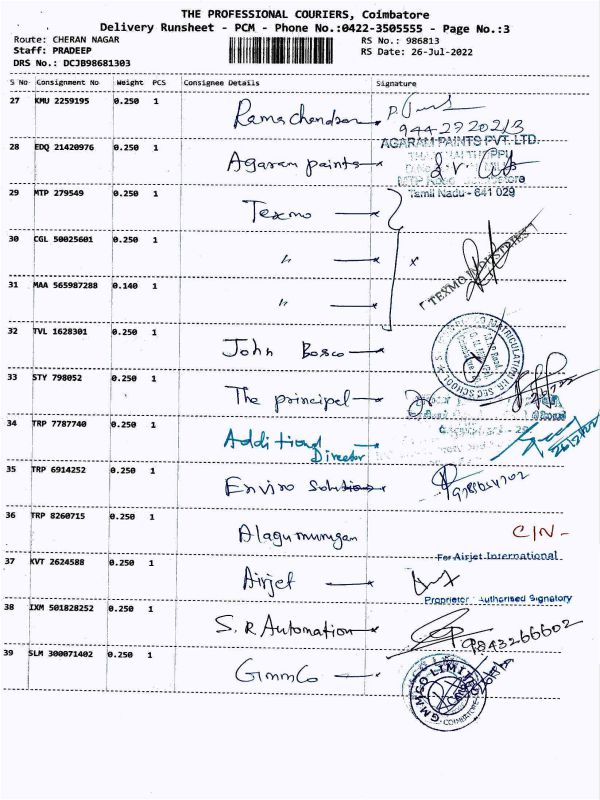 THE PROFESSIONAL COURIERS, Coimbatore
Delivery Runsheet - PCM - Phone No.:0422-3505555 - Page No.:3
Route: CHERAN NAGAR
Staff: PRADEEP
DRS No.: DCJB98681303
RS No.: 986813
RS Date: 26-Jul-2022
S No Consignment No Weight PCS Consignee Details Signature
27 KMU 2259195 0.250 1 Ramachandran
28 EDQ 21420976 0.250 1 Agaram paints
AGARAM PAINTS PVT. LTD.
Tamil Nadu - 641 029
29 MTP 279549 0.250 1 Texmo
30 CGL 50025601 0.250 1 〃 x
TEXMO INDUSTRIES
31 MAA 565987288 0.140 1 〃
32 TVL 1628301 0.250 1 John Bosco
MATRICULATION HR. SEC SCHOOL
33 STY 798052 0.250 1 The principel
34 TRP 7787740 0.250 1 Additional Director
35 TRP 6914252 0.250 1 Enviro Solutions
36 TRP 8260715 0.250 1 Alagumurugan CIN-
37 KVT 2624588 0.250 1 Airjet
For Airjet International
Proprietor Authorised Signatory
38 IXM 501828252 0.250 1 S.R Automation 9843266602
39 SLM 300071402 0.250 1 GmmCo
GMMCO LIMITED
COIMBATORE